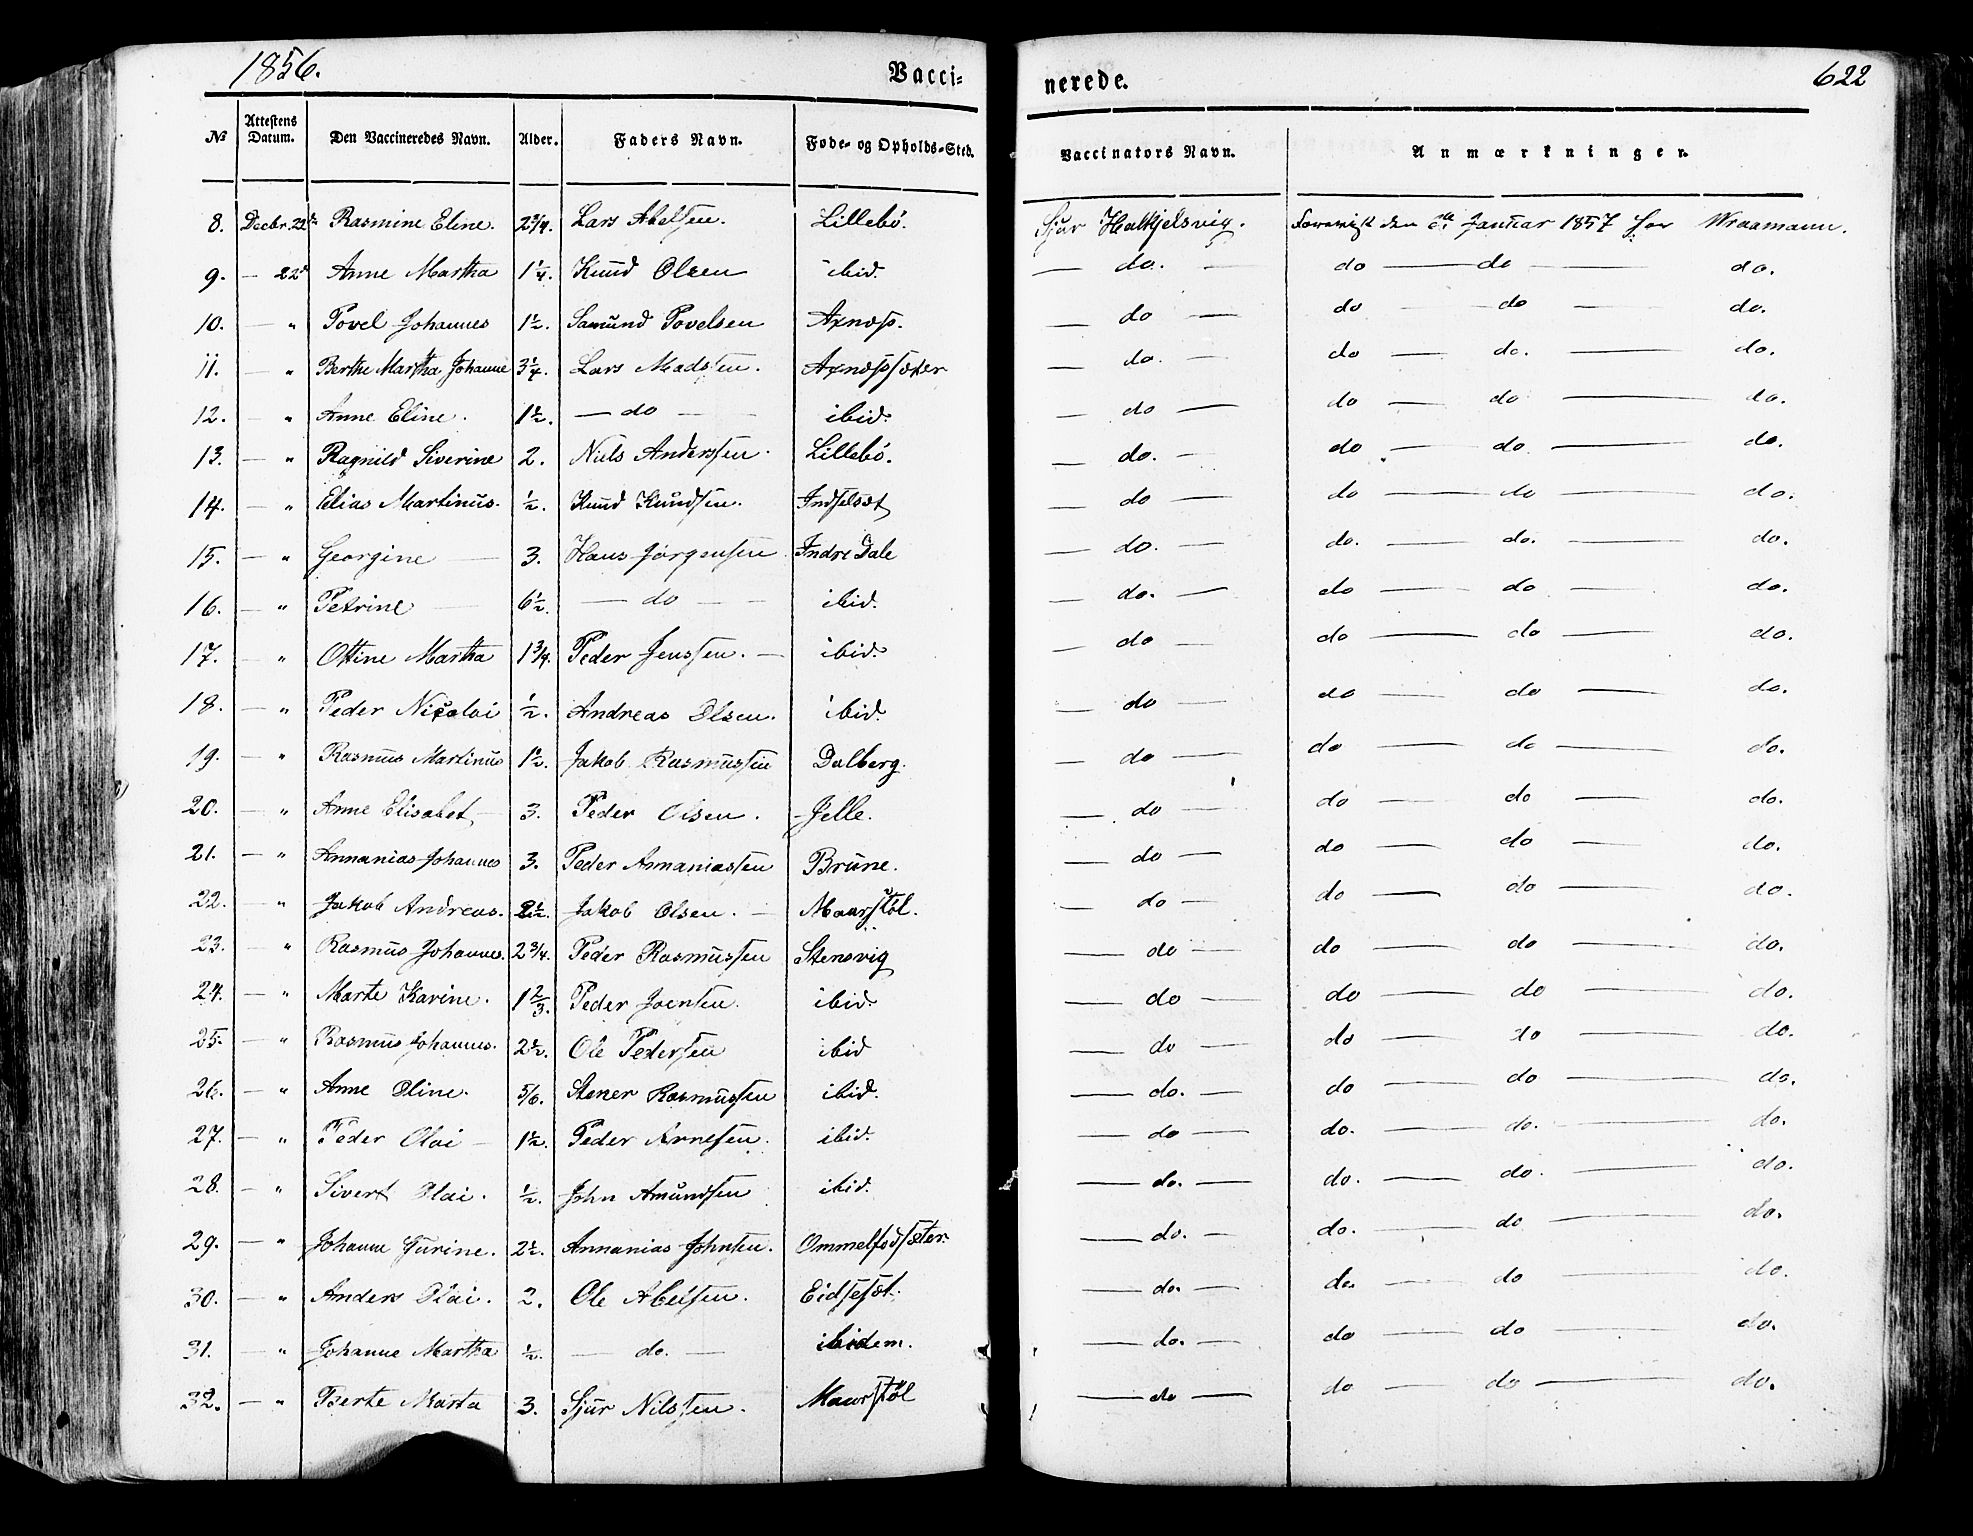 1856.
Vacci= nerede.
622
No Attestens Datum. Den Vaccineredes Navn. Alder. Faders Navn. Føde- og Opholds-Sted. Vaccinators Navn. Anmærkninger.
8. Decbr. 22d Rasmine Eline. 2 3/4. Lars Abelsen. Lillebø. Sjur Halkjelsvig. Foreviist den Januar 1857 for Wraamann.
9. — 22d Anne Martha 1 1/4. Knud Olsen ibid. — do. — do — do — do.
10. — " Povel Johannes 1 1/2. Samund Povelsen Axnæs. — do — do — do — do.
11. — " Berthe Martha Johanne 3 1/4. Lars Madssen. Axnæssæter — do. — do — do. — do.
12. — " Anne Eline. 1 1/2. — do — ibid. — do — do — do — do.
13. — " Ragnild Siverine 2. Niels Anderssen. Lillebø. — do. — do — do. — do.
14. — " Elias Martinus. 1/2. Knud Knudsen. Indselset — do — do — do — do.
15. — " Georgine — 3. Hans Jørgensen Indre Dale — do. — do. — do. — do.
16. — " Petrine — 6 1/2. — do — — ibid. — do. — do — do — do.
17. — " Ottine Martha 1 3/4. Peder Jenssen. — ibid. — do — do — do — do.
18. — " Peder Nicolai 1/2. Andreas Olsen. ibid. — do — do — do — do.
19. — " Rasmus Martinus 1 1/2. Jakob Rasmussen Dalberg. — do — do — do — do.
20. — " Anne Elisabet, 3. Peder Olsen. Jelle. — do — do — do — do.
21. — " Annanias Johannes 3. Peder Annaniassen Brune. — do — do — do — do.
22. — " Jakob Andreas. 2 1/2. Jakob Olsen. — Maurstøl. — do — do — do — do.
23. — " Rasmus Johannes. 2 3/4. Peder Rasmussen Stensvig — do — do — do — do.
24. — " Marte Karine. 1 2/3. Peder Joensen. ibid. — do — do — do — do.
25. — " Rasmus Johannes. 2 1/2. Ole Pedersen ibid — do — do — do — do.
26. — " Anne Oline. 5/6. Stener Rasmussen ibid. — do. — do — do — do.
27. — " Peder Olai — 1 1/2. Peder Arnesen. ibid. — do — do. — do. — do.
28. — " Sivert Olai. 1/2. John Amundsen ibid. — do. — do. — do. — do.
29. — " Johanne Gurine. 2 1/2. Annanias Johnsen. Ommelfodsæter. — do. — do. — do — do.
30. — " Anders Olai. 2. Ole Abelsen. Eidsesæt. — do. — do. — do — do.
31. — " Johanne Martha 1/2. — do. — ibidem. — do. — do — do — do.
32. — " Berte Marta 3. Sjur Nilssen. Maurstøl — do — do — do — do.